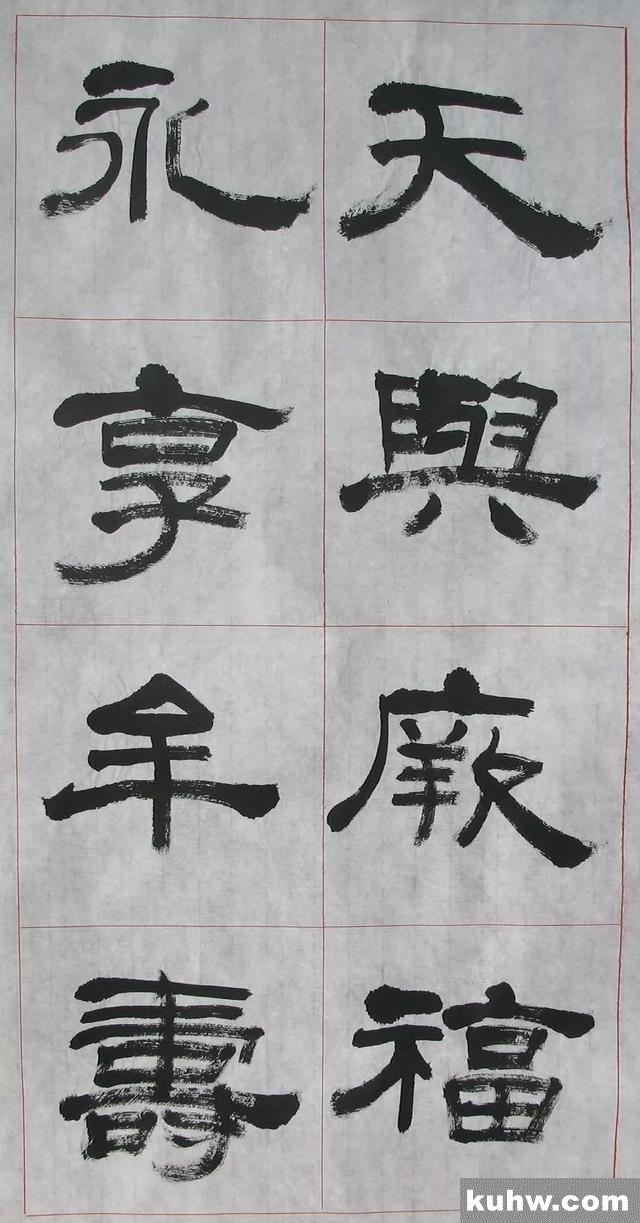 天與厥福
永享牟壽
kuhw.com